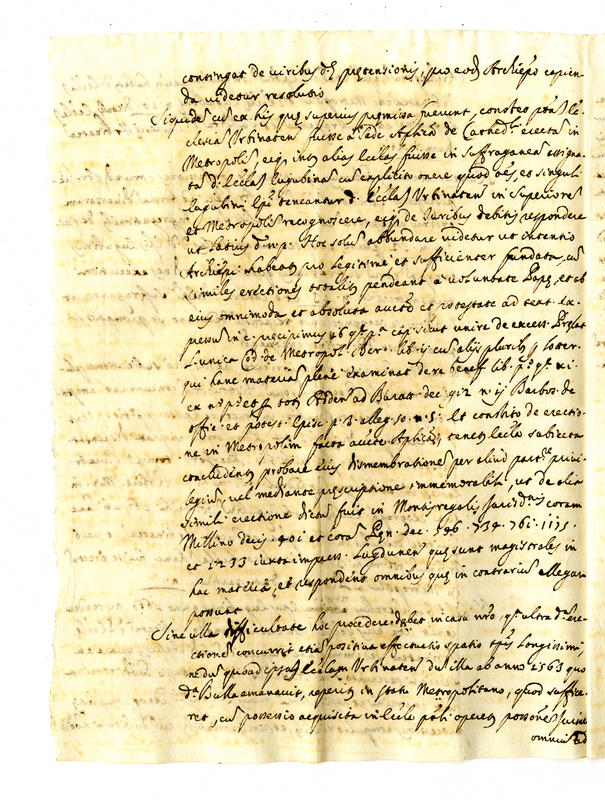 contingat de viribus d. prætensionis, pro eod. Archiep̃o capien-
da videtur resolutio
Siquidẽ cũ ex his quę superius præmissa fuerunt, constet p̃tã Ec-
clesiã Urbinateñ fuisse a Sede Apl̃ica de Cathedli erectã in
Metropolim, eiq; inter alias Ecc̃las fuisse in suffraganeã assigna-
tã d. Ecc̃lam Eugubinã cũ explicito onere quod oẽs, et singuli
Eugubini Ep̃i teneantur d. Ecc̃lam Urbinateñ in Superiorẽ
et Metropolim recognoscere, eiq; de Iuribus debitis respondere
ut latius Hoc solũ abbundare videtur ut intentio
Archiep̃i habeatur pro legitime et sufficienter fundata, cũ
similes erectiones totaliter pendeant a voluntate Papę, et ab
eius omnimoda et absoluta auctẽ et potestate ad text. ex-
pressũ in c. præcipimus 16 q. pª cap. sicut unire de excess. Prælat.
L. unica Cod. de Metropol. Ber. lib. ij cũ alijs pluribus Lotter.
qui hanc materiã plenè examinat de re benef. lib. pº qº xi.
ex nº pº et tot. Adden. ad Buratt. dec. 912 n. ij Barbos. de
offic. et potest. Episc. p. 3. alleg. 50. n. 5. Et constito de erectio-
ne in Metropolim facta aucte Apl̃ica, tenetur Ecc̃la subiecta
concludenter probare eius dismembrationẽ per aliud partre privi-
legiũ, vel mediante præscriptione immemorabili, ut de alia
simili erectione dictum fuit in Montisregalis Iurisdnis coram
Millino decis. 401 et corã Pgn. dec. 596. 734. 761. 1175.
et 1233 iuxta impress. Lugdunen. quę sunt magistrales in
hac materia, et respondent omnibus quę in contrariũ allegari
possunt
Sine ulla difficultate hoc procedere debet in casu nr̃o, qª ultra dã ere-
ctionẽ concurrit etiã positiva effectualis spatio tp̃is longissimi,
nedũ quoad ipsam Ecc̃lam Urbinateñ dũ illa ab anno 1563 quo
dª Bulla emanavit, reperitur in statu Metropolitano, quod suffice-
ret, cũ possessio acquisita in Ecc̃la p̃li operetur possoñe Iuriũ
omniũ ad